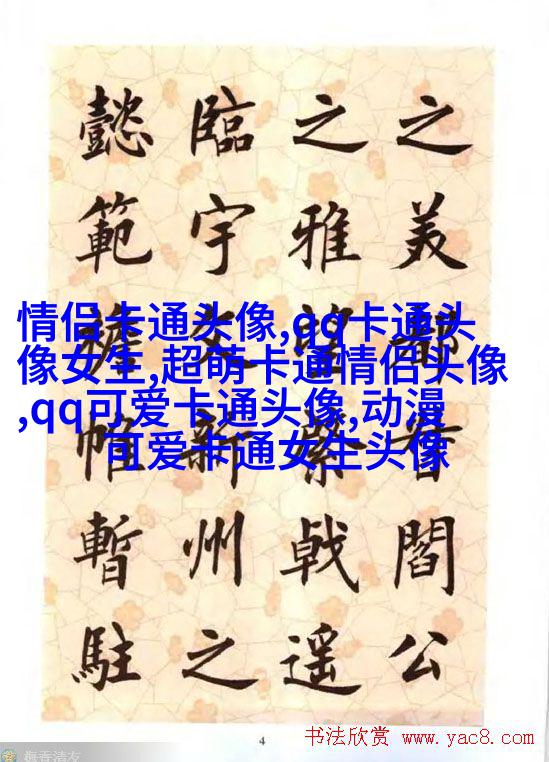 之美都督閻公
之雅望棨戟遥
臨宇文新州之
懿範襜帷暫駐
情侣卡通头像,qq卡通头
像女生,超萌卡通情侣头像
,qq可爱卡通头像,动漫
可爱卡通女生头像
4
书法欣赏 www.yac8.com